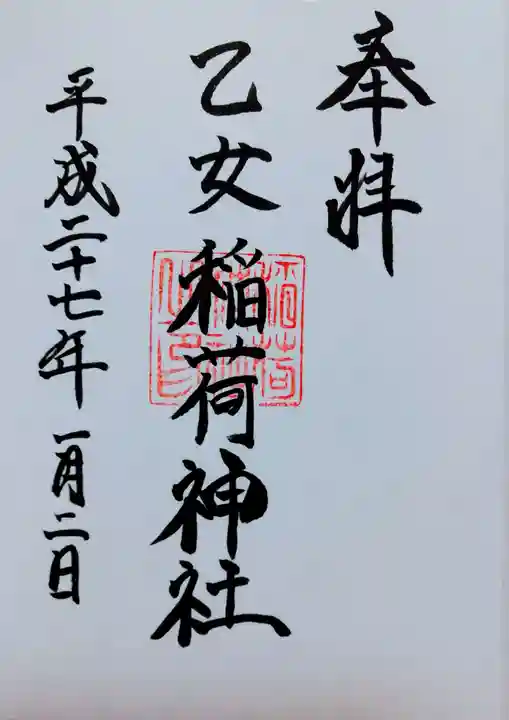 奉拝
乙女稲荷神社
平成二十七年一月二日